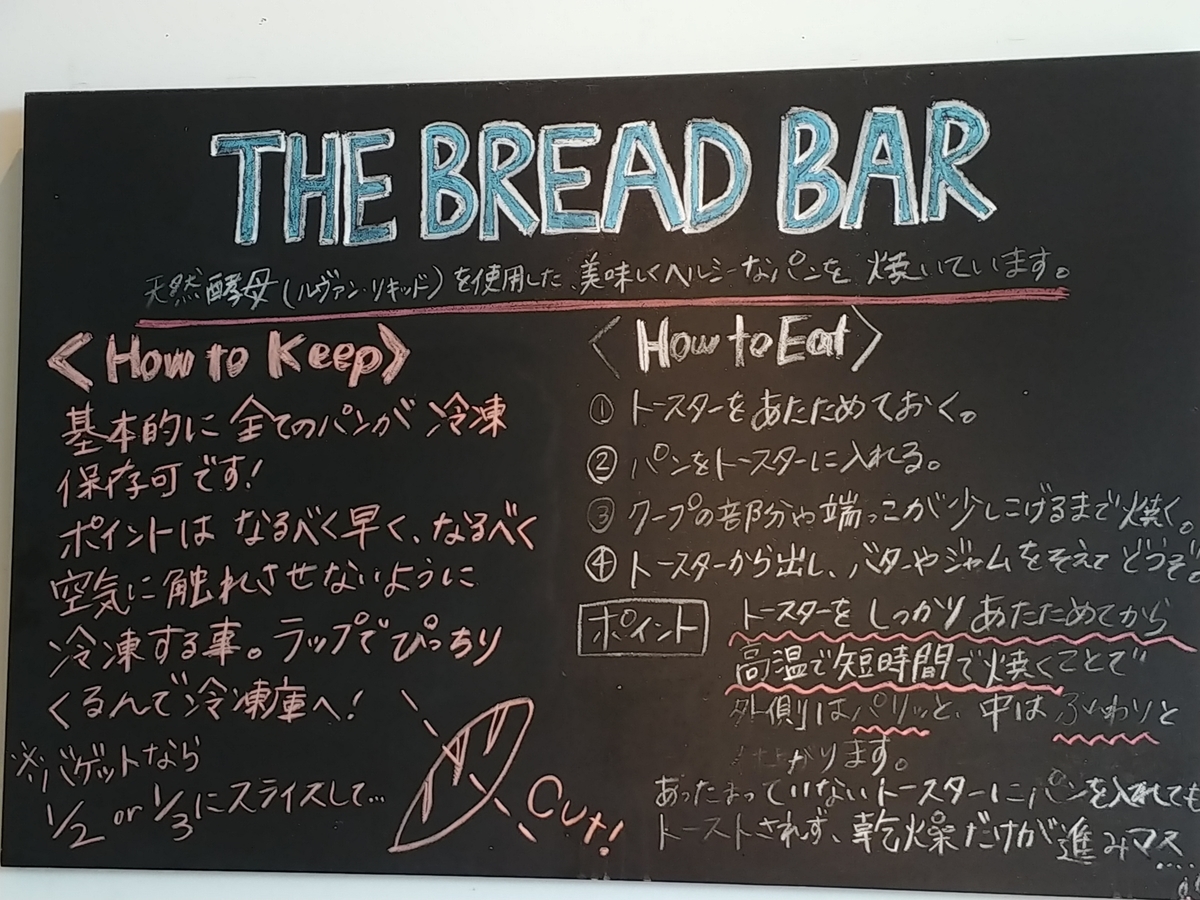 THE BREAD BAR
天然酵母(ルヴァン・リキッド)を使用した、美味しくヘルシーなパンを 焼いています。
<How to Keep>
基本的に全てのパンが冷凍
保存可です!
ポイントは なるべく早く、なるべく
空気に触れさせないように
冷凍する事。ラップでぴっちり
くるんで冷凍庫へ!
※バゲットなら
1/2 or 1/3にスライスして…
Cut!
<How to Eat>
① トースターをあたためておく。
② パンをトースターに入れる。
③ クープの部分や端っこが少しこげるまで焼く。
④ トースターから出し、バターやジャムをそえてどうぞ。
ポイント
トースターをしっかりあたためてから
高温で短時間で焼くことで
外側はパリッと、中はふわりと
仕上がります。
あったまっていないトースターにパンを入れても
トーストされず、乾燥だけが進みマス....